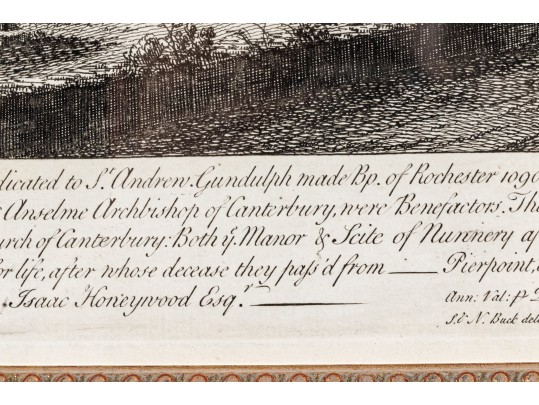 dicated to S.t Andrew. Gundulph made Bp. of Rochester 1090
Anselme Archbishop of Canterbury, were Benefactors. The
urch of Canterbury: Both y.e Manor & Scite of Nunnery af
for life, after whose decease they pass'd from —— Pierpoint,
Isaac Honeywood Esq.r ——
Ann: Val:
S. & N. Buck del